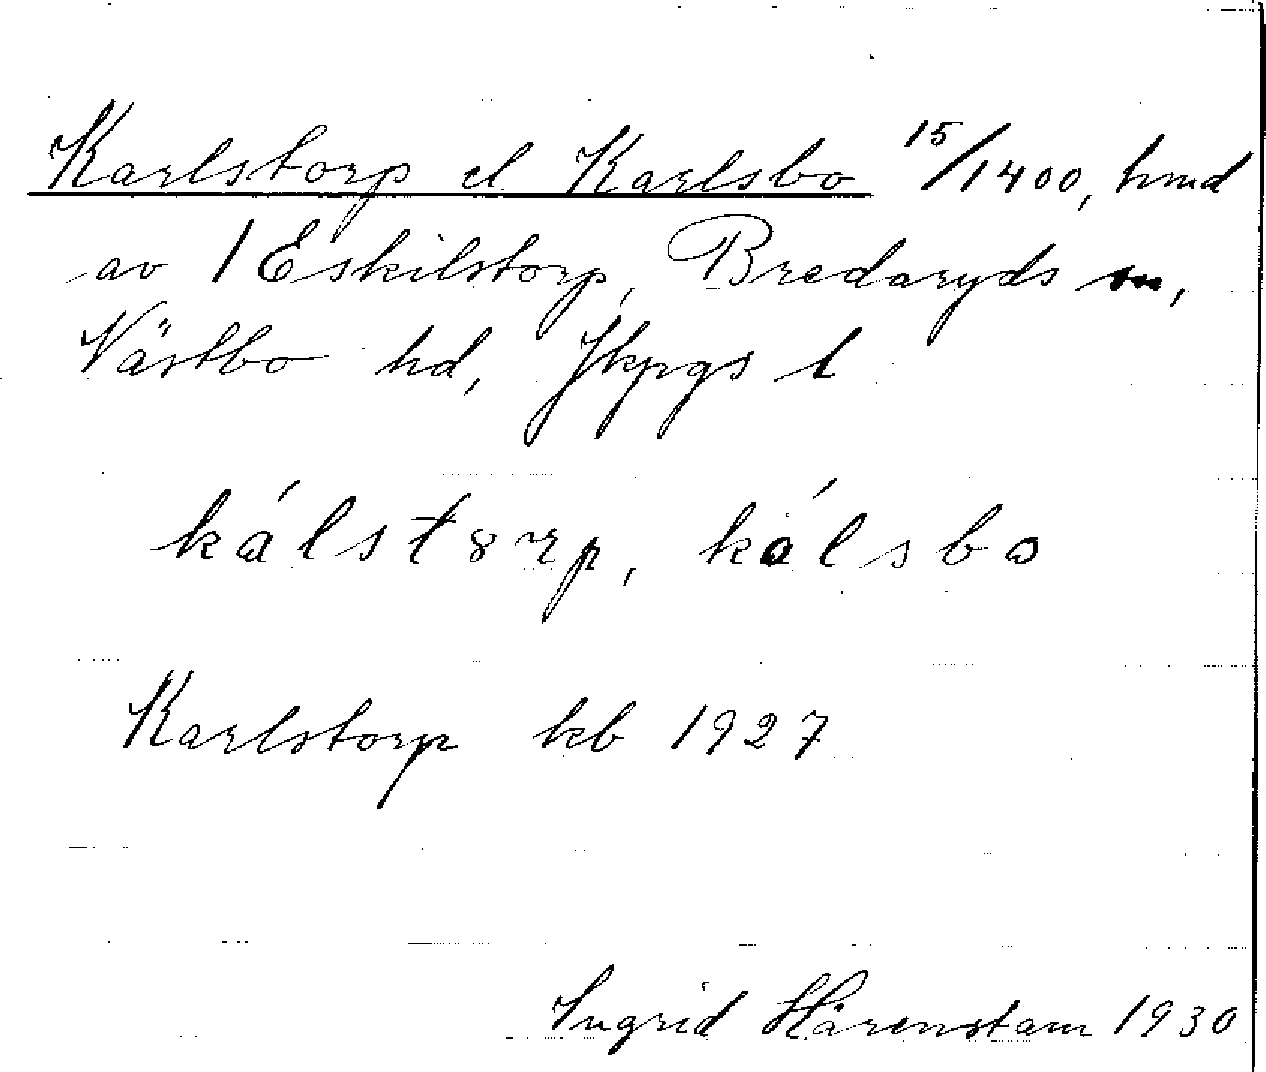 Karlstorp el Karlsbo 15/1400, hmd
av 1 Eskilstorp, Bredaryds sn,
Västbo hd, Jkpgs l
kálst8rp, kálsbo
Karlstorp kb 1927
Ingrid Härenstam 1930